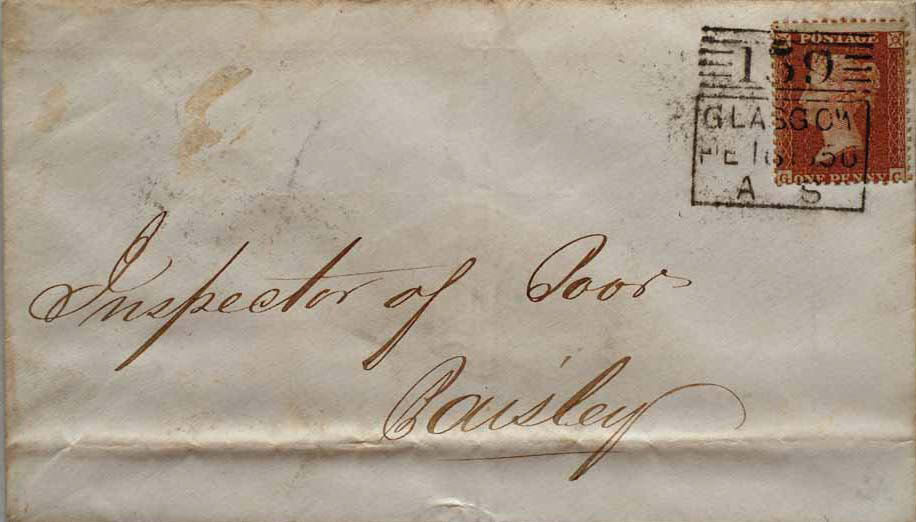 POSTAGE
159
GLASGOW
FE 16 1856
A S
G ONE PENNY G
Inspector of Poor
Paisley